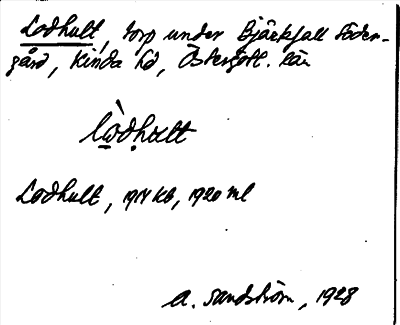 Lodhult, torp under Björkfall Söder-
gård, Kinda hd, Östergötl. län
lò̱dḥult
Lodhult, 1917 kb, 1920 ml
A. Sandström, 1928